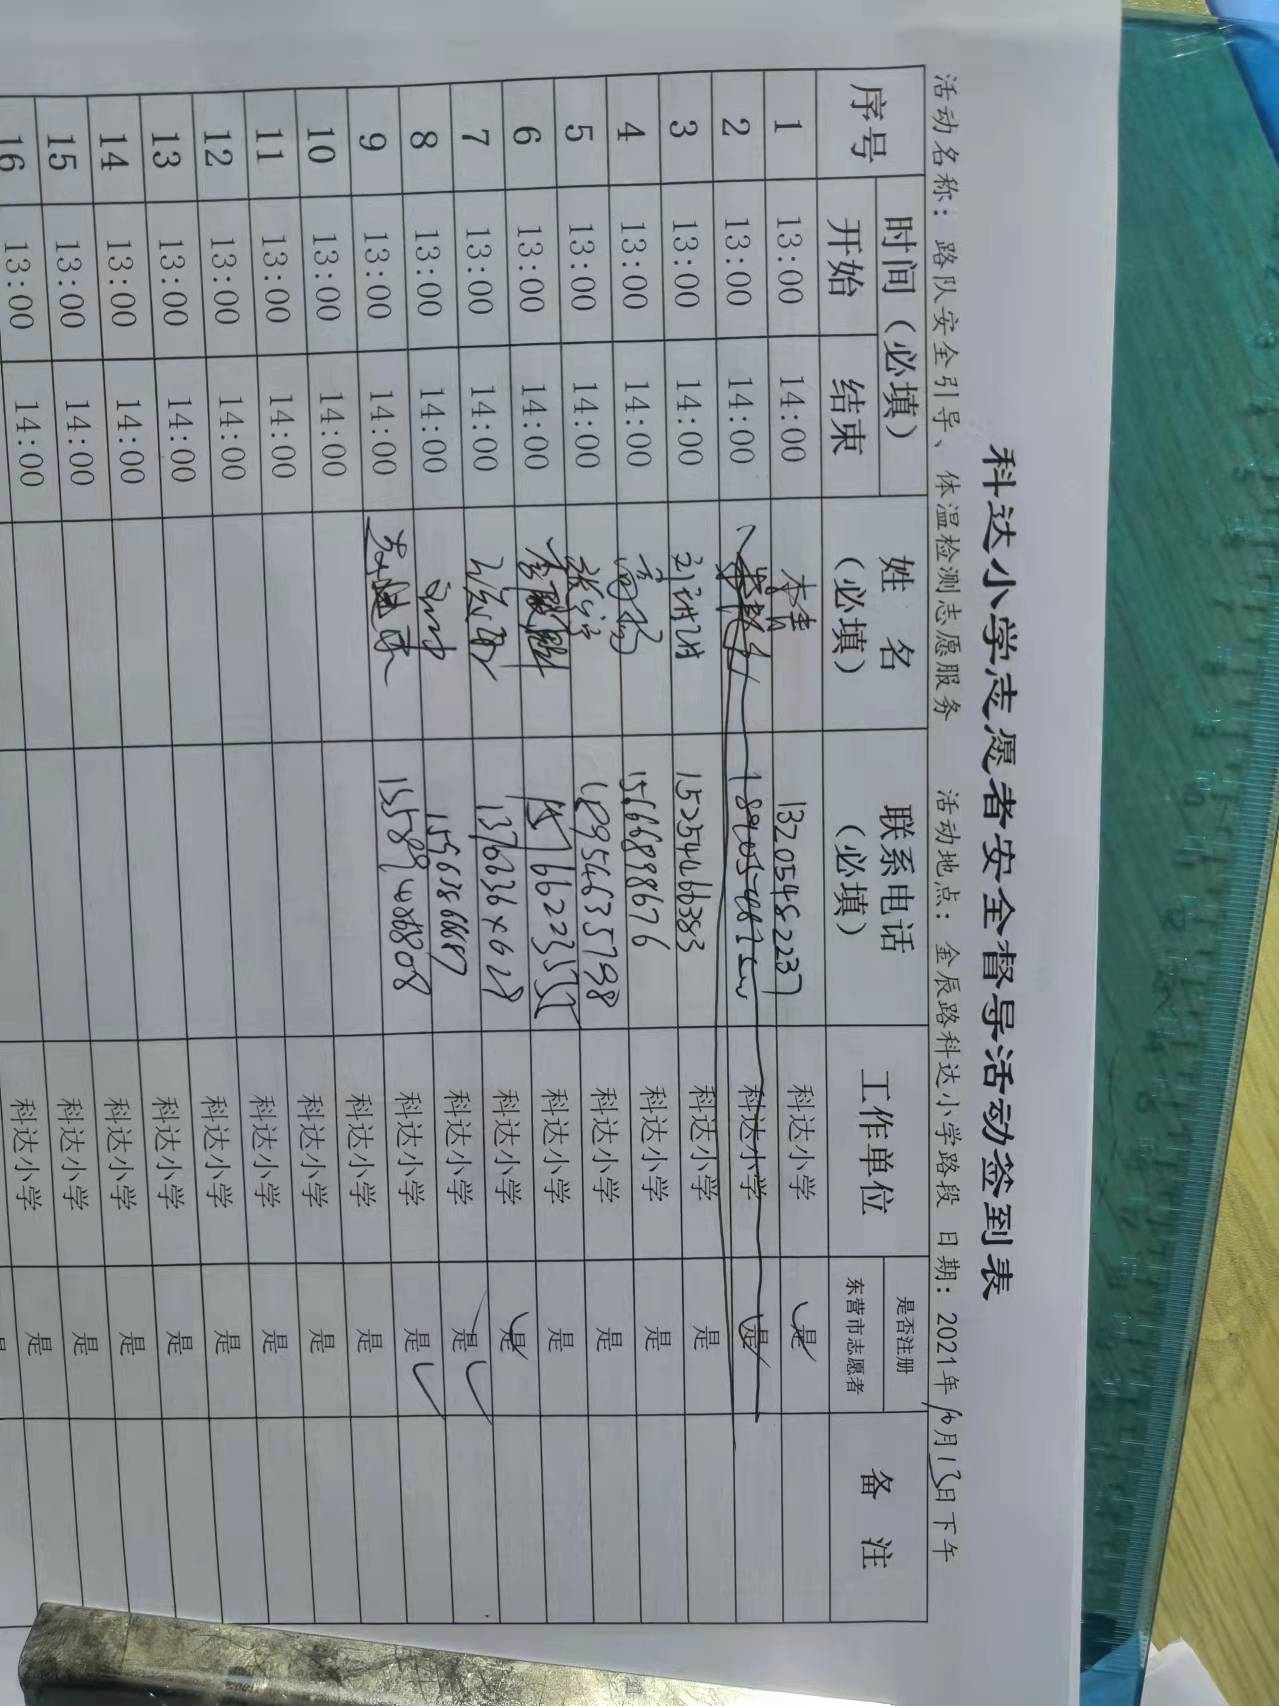 科达小学志愿者安全督导活动签到表
活动名称：路队安全引导、体温检测志愿服务 活动地点：金辰路科达小学路段 日期：2021年10月13日下午
序号 时间（必填） 姓名（必填） 联系电话（必填） 工作单位 是否注册东营市志愿者 备注
开始 结束
1 13:00 14:00 李倩 13205482237 科达小学 是
2 13:00 14:00 科达小学 是
3 13:00 14:00 15254466383 科达小学 是
4 13:00 14:00 高杨 1566898676 科达小学 是
5 13:00 14:00 18954635798 科达小学 是
6 13:00 14:00 科达小学 是
7 13:00 14:00 科达小学 是
8 13:00 14:00 科达小学 是
9 13:00 14:00 科达小学 是
10 13:00 14:00 科达小学 是
11 13:00 14:00 科达小学 是
12 13:00 14:00 科达小学 是
13 13:00 14:00 科达小学 是
14 13:00 14:00 科达小学 是
15 13:00 14:00 科达小学 是
16 13:00 14:00 科达小学 是